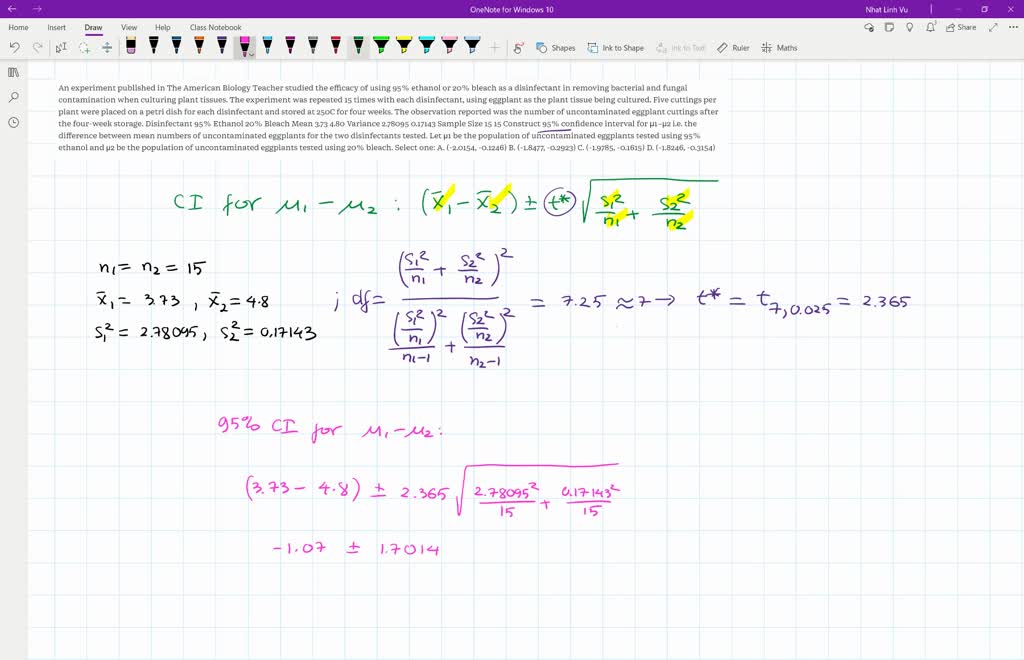 OneNote for Windows 10
Nhat Linh Vu
Home Insert Draw View Help Class Notebook
Share
Shapes Ink to Shape Ink to Text Ruler Maths
An experiment published in The American Biology Teacher studied the efficacy of using 95% ethanol or 20% bleach as a disinfectant in removing bacterial and fungal
contamination when culturing plant tissues. The experiment was repeated 15 times with each disinfectant, using eggplant as the plant tissue being cultured. Five cuttings per
plant were placed on a petri dish for each disinfectant and stored at 250C for four weeks. The observation reported was the number of uncontaminated eggplant cuttings after
the four-week storage. Disinfectant 95% Ethanol 20% Bleach Mean 3.73 4.80 Variance 2.78095 0.17143 Sample Size 15 15 Construct 95% confidence interval for μ1-μ2 i.e. the
difference between mean numbers of uncontaminated eggplants for the two disinfectants tested. Let μ1 be the population of uncontaminated eggplants tested using 95%
ethanol and μ2 be the population of uncontaminated eggplants tested using 20% bleach. Select one: A. (-2.0154, -0.1246) B. (-1.8477, -0.2923) C. (-1.9785, -0.1615) D. (-1.8246, -0.3154)
CI for μ₁ - μ₂ : (x̄₁ - x̄₂) ± t* √(s₁²/n₁ + s₂²/n₂)
n₁ = n₂ = 15
x̄₁ = 3.73 , x̄₂ = 4.8
s₁² = 2.78095 , s₂² = 0.17143
; df = (s₁²/n₁ + s₂²/n₂)² / ((s₁²/n₁)²/(n₁-1) + (s₂²/n₂)²/(n₂-1)) = 7.25 ≈ 7 → t* = t₇,₀.₀₂₅ = 2.365
95% CI for μ₁ - μ₂ :
(3.73 - 4.8) ± 2.365 √(2.78095²/15 + 0.17143²/15)
-1.07 ± 1.7014